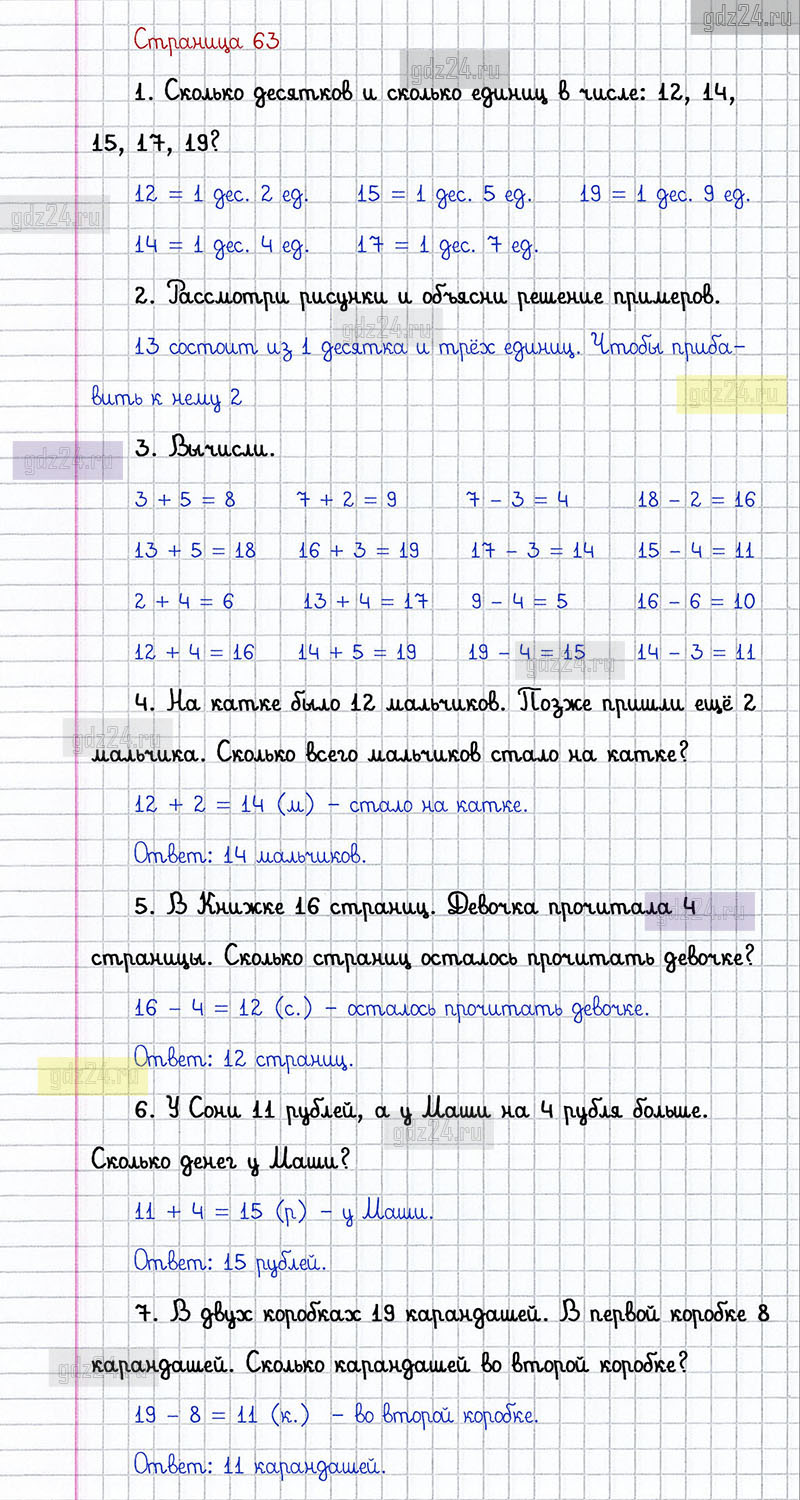 gdz24.ru
Страница 63
gdz24.ru
1. Сколько десятков и сколько единиц в числе: 12, 14,
15, 17, 19?
12 = 1 дес. 2 ед. 15 = 1 дес. 5 ед. 19 = 1 дес. 9 ед.
gdz24.ru
14 = 1 дес. 4 ед. 17 = 1 дес. 7 ед.
2. Рассмотри рисунки и объясни решение примеров.
gdz24.ru
13 состоит из 1 десятка и трёх единиц. Чтобы приба-
вить к нему 2
gdz24.ru
3. Вычисли.
gdz24.ru
3 + 5 = 8 7 + 2 = 9 7 - 3 = 4 18 - 2 = 16
13 + 5 = 18 16 + 3 = 19 17 - 3 = 14 15 - 4 = 11
2 + 4 = 6 13 + 4 = 17 9 - 4 = 5 16 - 6 = 10
12 + 4 = 16 14 + 5 = 19 19 - 4 = 15 14 - 3 = 11
gdz24.ru
4. На катке было 12 мальчиков. Позже пришли ещё 2
gdz24.ru
мальчика. Сколько всего мальчиков стало на катке?
12 + 2 = 14 (м) - стало на катке.
Ответ: 14 мальчиков.
5. В Книжке 16 страниц. Девочка прочитала 4
gdz24.ru
страницы. Сколько страниц осталось прочитать девочке?
16 - 4 = 12 (с.) - осталось прочитать девочке.
Ответ: 12 страниц.
gdz24.ru
6. У Сони 11 рублей, а у Маши на 4 рубля больше.
gdz24.ru
Сколько денег у Маши?
11 + 4 = 15 (р) - у Маши.
Ответ: 15 рублей.
7. В двух коробках 19 карандашей. В первой коробке 8
gdz24.ru
карандашей. Сколько карандашей во второй коробке?
19 - 8 = 11 (к.) - во второй коробке.
Ответ: 11 карандашей.